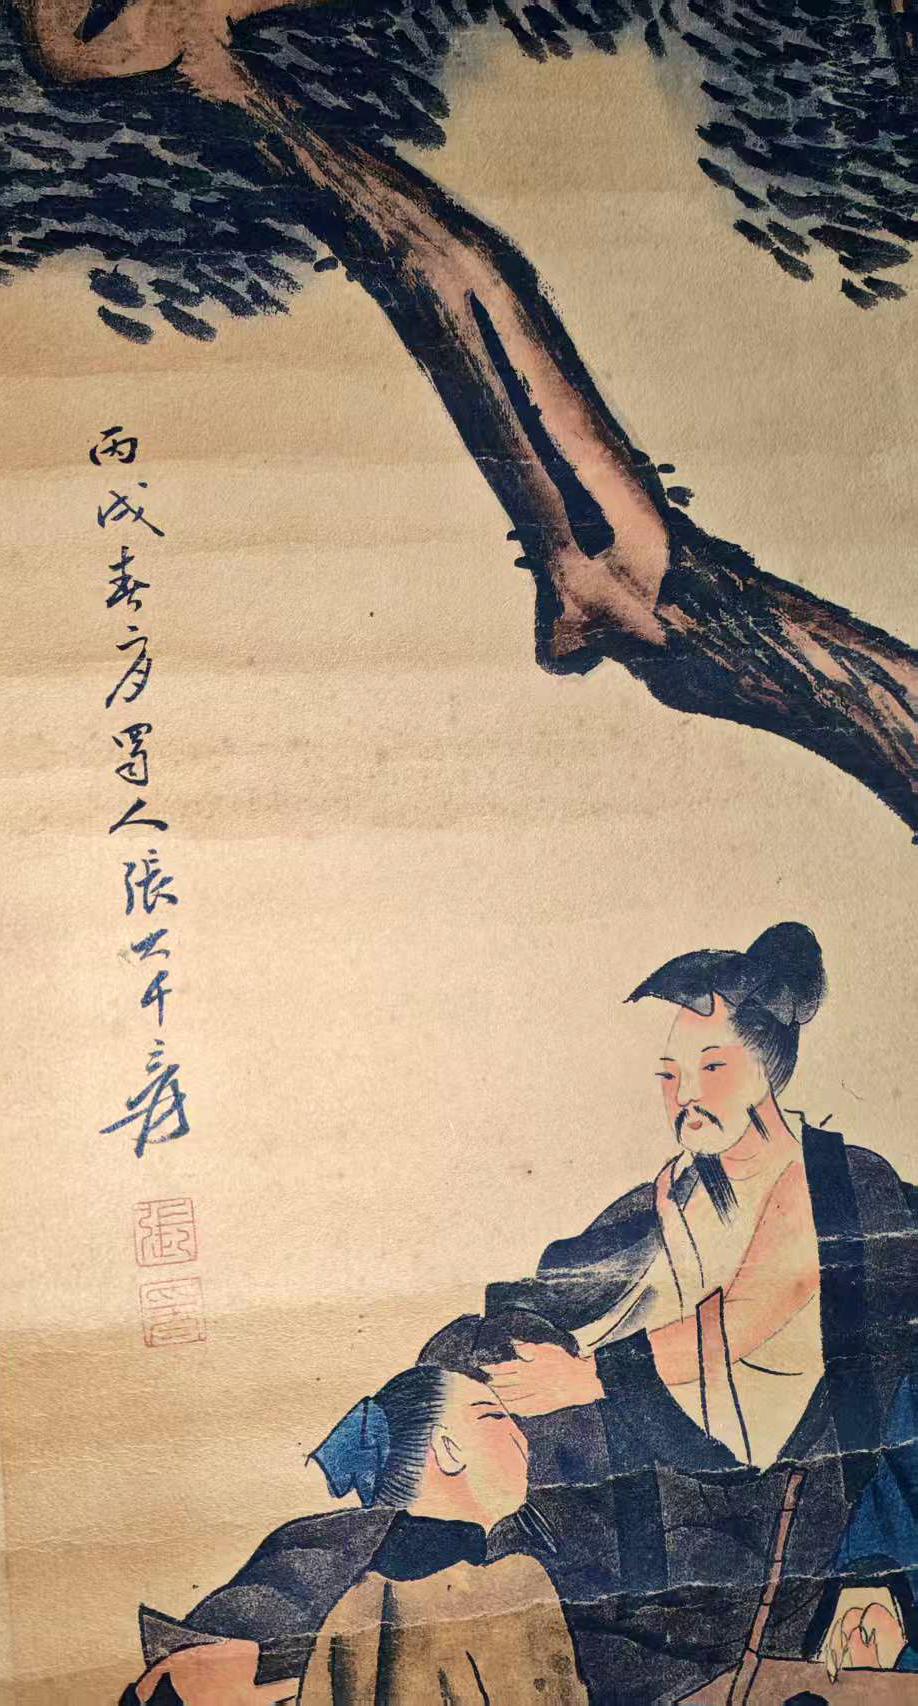 丙戌春月蜀人張大千爰
張